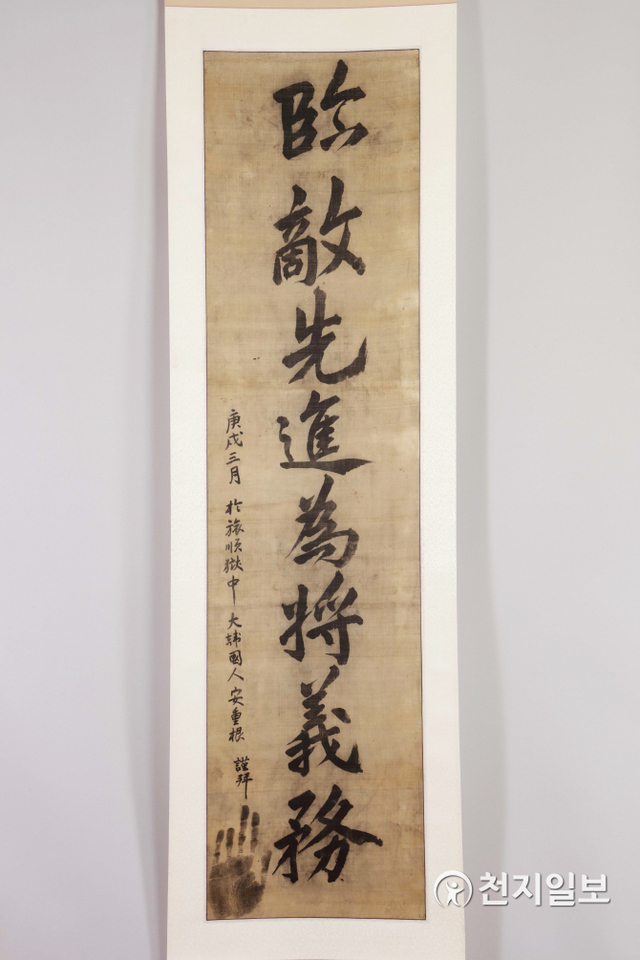 臨敵先進為將義務
庚戌三月 於旅順獄中 大韓國人 安重根 謹拜
천지일보